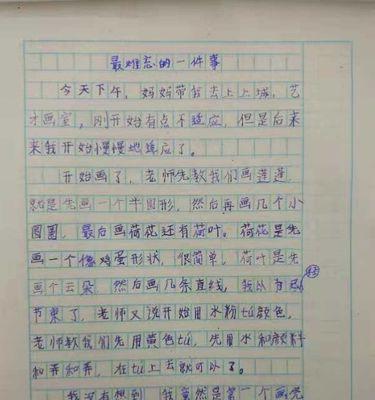 最难忘的一件事
今天下午，妈妈带我去上上城，艺
才画室，刚开始有点不适应，但是后来
来我开始慢慢地适应了。
开始画了，老师先教我们画莲蓬，
就是先画一个半圆形，然后再画几个小
圆圈，最后画荷花还有荷叶。荷花是先
画一个像鸡蛋形状，很简单，荷叶是先
画个云朵，然后画几条直线，我以为
节束了，老师又说开始用水粉tú颜色，
老师教我们先用黄色tú，先用水和颜
和弄和弄，在tú上去就可以了。
我没有想到，我竟然是第一个画完